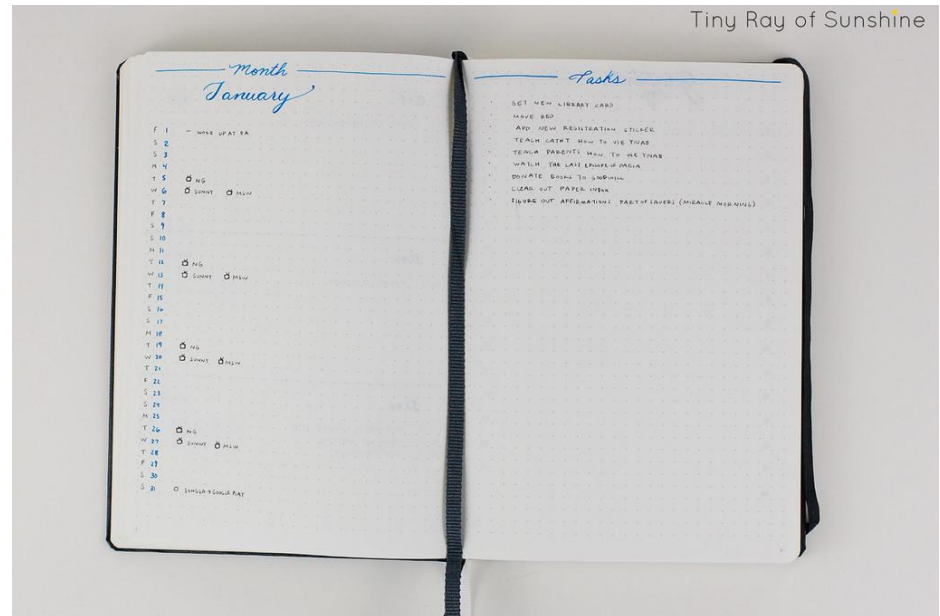 Tiny Ray of Sunshine
Month
January
F 1 – WOKE UP AT 9A
S 2
S 3
M 4
T 5 NG
W 6 SUNNY MSW
T 7
F 8
S 9
S 10
M 11
T 12 NG
W 13 SUNNY MSW
T 14
F 15
S 16
S 17
M 18
T 19 NG
W 20 SUNNY MSW
T 21
F 22
S 23
S 24
M 25
T 26 NG
W 27 SUNNY MSW
T 28
F 29
S 30
S 31 GOOGLE PLAY
Tasks
GET NEW LIBRARY CARD
MOVE BED
ADD NEW REGISTRATION STICKER
TEACH CATHY HOW TO USE YNAB
TEACH PARENTS HOW TO USE YNAB
WATCH THE LAST EPISODE OF
DONATE BOOKS TO GOODWILL
CLEAR OUT PAPER INBOX
FIGURE OUT AFFIRMATIONS PART OF SAVERS (MIRACLE MORNING)